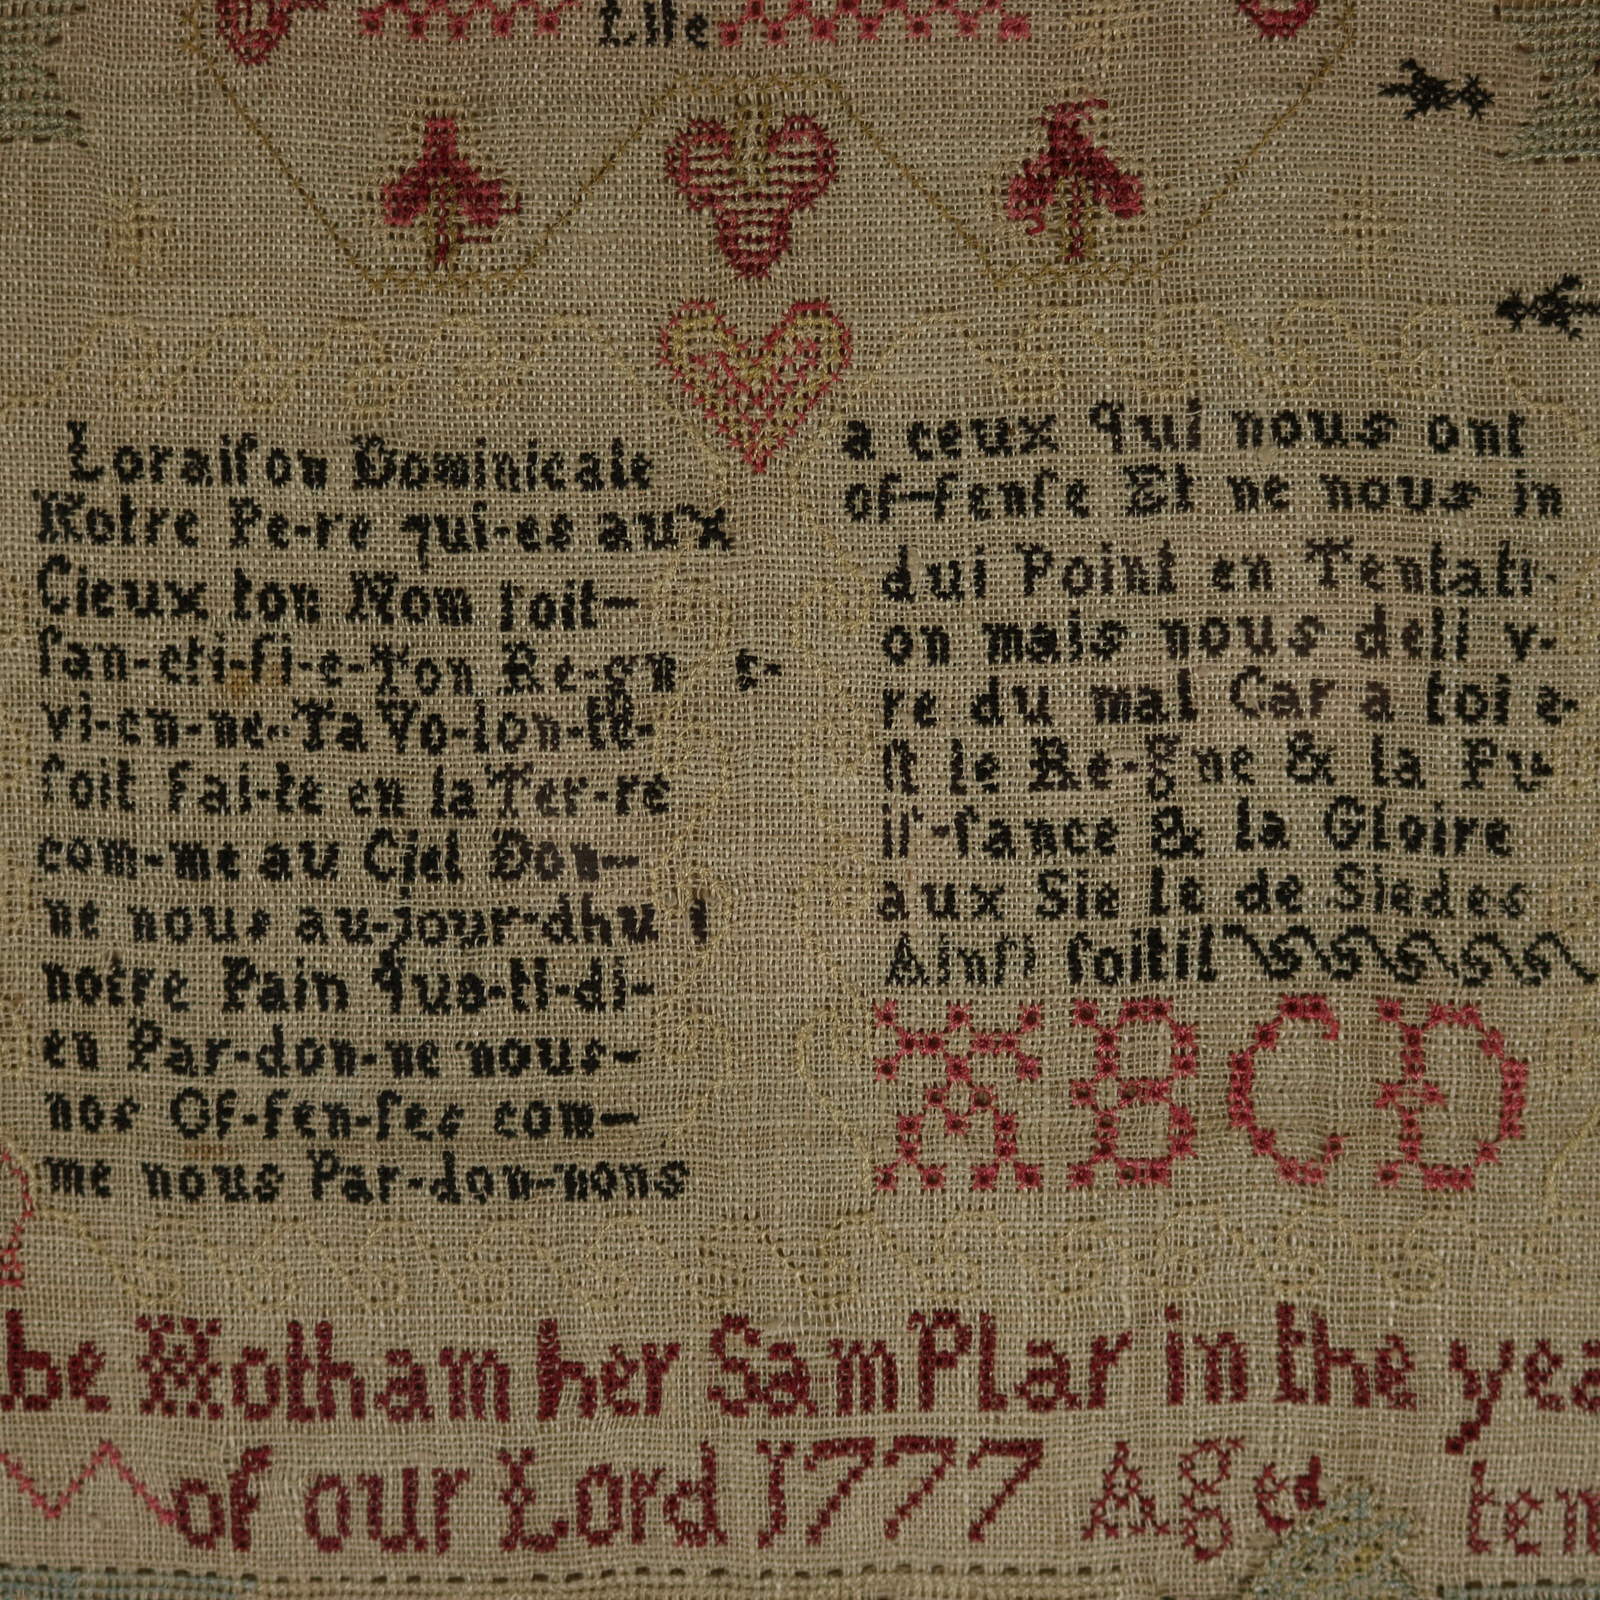 Life
Loraiſon Dominicale
Notre Pe-re qui-es aux
Cieux ton Nom ſoit-
ſan-cti-fi-e-Ton Re-gn e-
vi-en-ne-Ta Vo-lon-te-
ſoit fai-te en la Ter-re
com-me au Ciel Don-
ne nous au-jour-dhu i
notre Pain quo-ti-di-
en Par-don-ne nous-
nos Of-fen-ſes com-
me nous Par-don-nons
a ceux qui nous ont
of-fenſe Et ne nous in
dui Point en Tentati-
on mais nous deli v-
re du mal Car a toi e-
ſt le Re-gne & la Pu
iſ-ſance & la Gloire
aux Sie le de Siecles
Ainſi ſoitil
ABCD
be Notham her SamPlar in the yea
of our Lord 1777 Aged ten